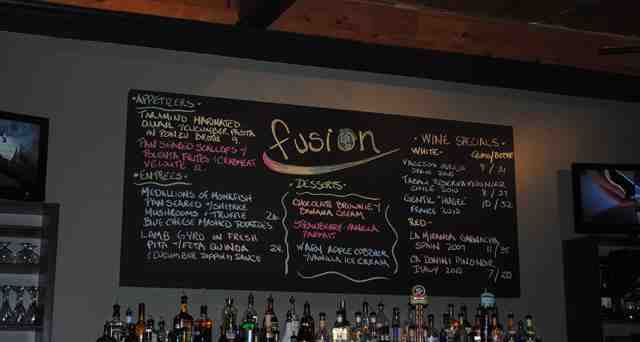 • APPETIZERS •
TAMARIND MARINATED
QUAIL + CUCUMBER PASTA
IN PONZU BROTH
PAN SEARED SCALLOPS +
POLENTA FRITES
VELOUTE 12
• ENTREES •
MEDALLIONS OF MONKFISH
PAN SEARED + SHIITAKE
MUSHROOMS + TRUFFLE
BLUE CHEESE MASHED POTATOES
LAMB GYRO IN FRESH
PITA + FETA QUINOA
CUCUMBER SAUCE
fusion
• DESSERTS •
CHOCOLATE BROWNIE +
BANANA CREAM
STRAWBERRY-VANILLA
PARFAIT
WARM APPLE COBBLER
+ VANILLA ICE CREAM
• WINE SPECIALS •
WHITE - GLASS/BOTTLE
SPAIN 2010 9/31
CHILE 2010 8/31
GENTIL "HUGEL" 10/32
FRANCE
RED -
LA MIRANDA GARNACHA
SPAIN 2009 11/35
CA DONINI PINOT NOIR
ITALY 2010 7/20